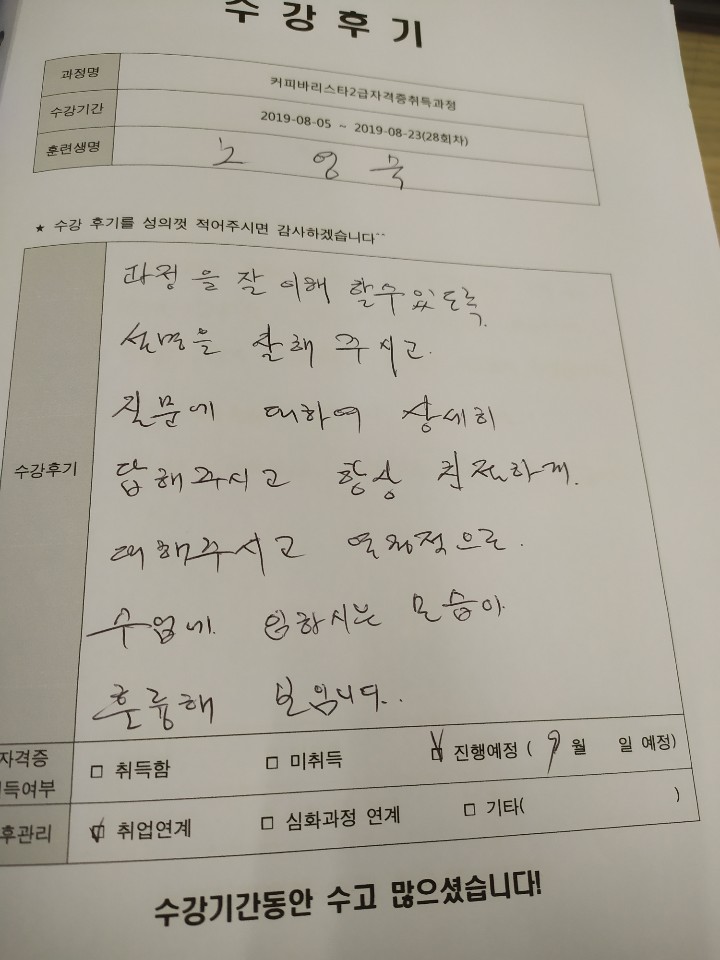 수강후기
과정명 커피바리스타2급자격증취득과정
수강기간 2019-08-05 ~ 2019-08-23(28회차)
훈련생명 노영묵
★ 수강 후기를 성의껏 적어주시면 감사하겠습니다^^
수강후기
과정을 잘 이해 할수있도록
설명을 잘해 주시고.
질문에 대하여 상세히
답해주시고 항상 친절하게.
대해주시고 열정적으로.
수업에 임하시는 모습이
훌륭해 보입니다..
자격증
득여부
□ 취득함 □ 미취득 ☑ 진행예정 ( 9월 일 예정)
후관리 ☑ 취업연계 □ 심화과정 연계 □ 기타( )
수강기간동안 수고 많으셨습니다!